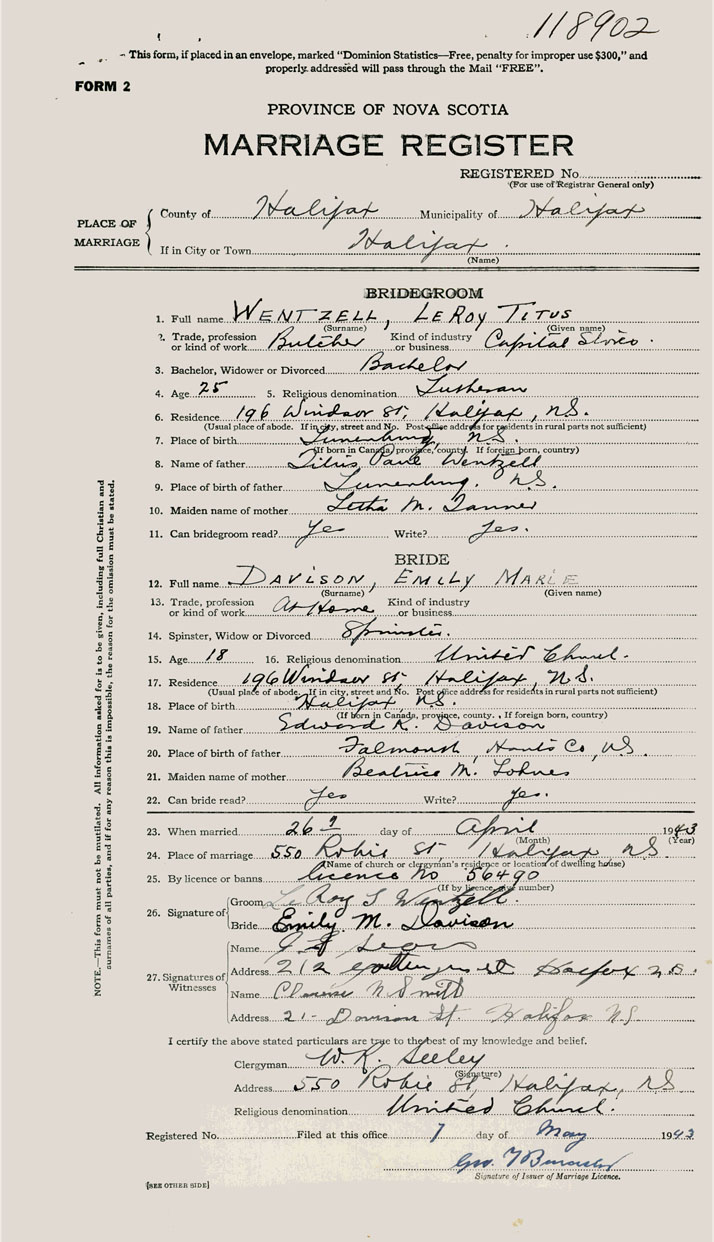 118902
This form, if placed in an envelope, marked "Dominion Statistics—Free, penalty for improper use $300," and
properly addressed will pass through the Mail "FREE".
FORM 2
PROVINCE OF NOVA SCOTIA
MARRIAGE REGISTER
REGISTERED No.
(For use of Registrar General only)
PLACE OF MARRIAGE
County of Halifax Municipality of Halifax
If in City or Town Halifax.
(Name)
BRIDEGROOM
1. Full name WENTZELL, LEROY TITUS
(Surname) (Given name)
2. Trade, profession or kind of work Butcher Kind of industry or business Capital Stores.
3. Bachelor, Widower or Divorced Bachelor
4. Age 25 5. Religious denomination Lutheran
6. Residence 196 Windsor St, Halifax, N.S.
(Usual place of abode. If in city, street and No. Post office address for residents in rural parts not sufficient)
7. Place of birth Lunenburg, N.S.
(If born in Canada, province, county. If foreign born, country)
8. Name of father Titus Paul Wentzell
9. Place of birth of father Lunenburg. N.S.
10. Maiden name of mother Letha M. Tanner
11. Can bridegroom read? Yes Write? Yes.
BRIDE
12. Full name DAVISON, EMILY MARIE
(Surname) (Given name)
13. Trade, profession or kind of work At Home Kind of industry or business
14. Spinster, Widow or Divorced Spinster.
15. Age 18 16. Religious denomination United Church.
17. Residence 196 Windsor St, Halifax, N.S.
(Usual place of abode. If in city, street and No. Post office address for residents in rural parts not sufficient)
18. Place of birth Halifax, N.S.
(If born in Canada, province, county. If foreign born, country)
19. Name of father Edward K. Davison
20. Place of birth of father Falmouth, Hants Co, N.S.
21. Maiden name of mother Beatrice M. Lohnes
22. Can bride read? Yes Write? Yes.
23. When married 26 day of April 1943
(Month) (Year)
24. Place of marriage 550 Robie St, Halifax N.S.
(Name of church or clergyman's residence or location of dwelling house)
25. By licence or banns licence No 56490
(If by licence, give number)
26. Signature of
Groom LeRoy T Wentzell.
Bride Emily M. Davison
27. Signatures of Witnesses
Name
Address 212 Halifax N.S.
Name N Smith
Address 21 Davison St. Halifax N.S.
I certify the above stated particulars are true to the best of my knowledge and belief.
Clergyman W. R. Seeley
(Signature)
Address 550 Robie St, Halifax, N.S.
Religious denomination United Church.
Registered No. Filed at this office 7 day of May 1943
Geo.
Signature of Issuer of Marriage Licence.
[SEE OTHER SIDE]
NOTE.—This form must not be mutilated. All information asked for is to be given, including full Christian and
surnames of all parties, and if for any reason this is impossible, the reason for the omission must be stated.